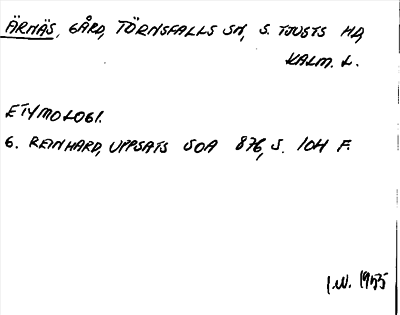 ÄRNÄS, GÅRD, TÖRNSFALLS SN, S. TJUSTS HD,
KALM. L.
ETYMOLOGI.
G. REINHARD, UPPSATS SOA 876, S. 104 F.
I.W. 1955